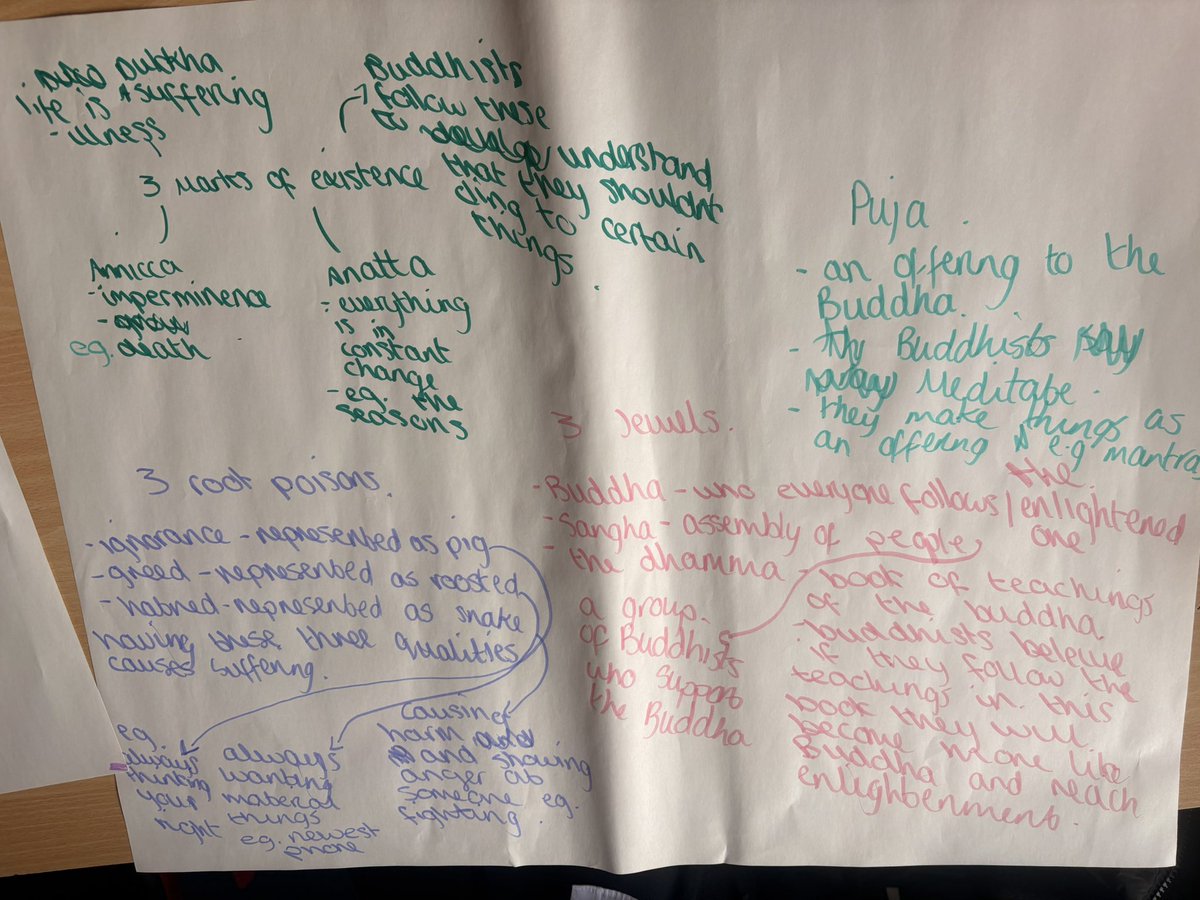 Dukkha
life is suffering
- illness
Buddhists
follow these
to understand
that they shouldnt
cling to certain
things
3 Marks of existence
Annicca
- imperminence
eg. death
Anatta
- everything
is in
constant
change
- eg. the
seasons
Puja.
- an offering to the
Buddha.
- Buddhists
Meditate.
- they make things as
an offering e.g mantra
3 root poisons.
- ignorance - represented as pig
- greed - represented as roosted
- hatred - represented as snake
having these three qualities
causes suffering.
eg.
always
thinking
your
right
always
wanting
material
things
eg. newest
phone
causing
harm
and showing
anger at
someone eg.
fighting.
3 Jewels.
- Buddha - who everyone follows / the enlightened
one
- Sangha - assembly of people
- the dhamma - book of teachings
of the buddha.
a group
of Buddhists
who support
the Buddha
- buddhists beleive
if they follow the
teachings in this
book they will
become more like
Buddha and reach
enlightenment.